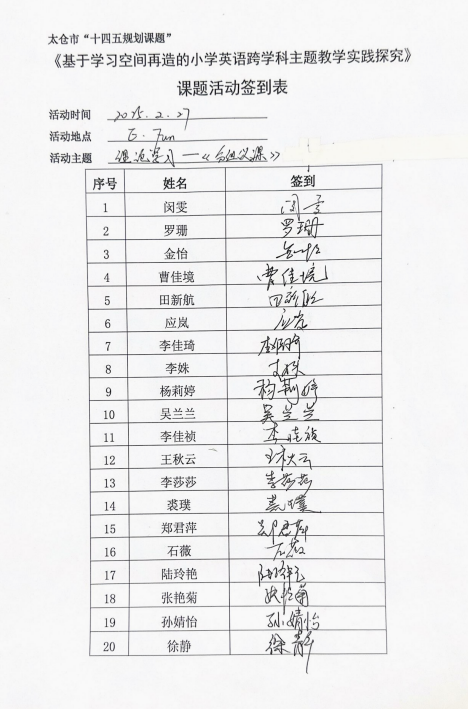 太仓市“十四五规划课题”
《基于学习空间再造的小学英语跨学科主题教学实践探究》
课题活动签到表
活动时间 2025.2.27
活动地点 E·Fun
活动主题
序号 姓名 签到
1 闵雯 闵雯
2 罗珊 罗珊
3 金怡 金怡
4 曹佳境 曹佳境
5 田新航 田新航
6 应岚 应岚
7 李佳琦
8 李姝 李姝
9 杨莉婷 杨莉婷
10 吴兰兰 吴兰兰
11 李佳祯 李佳祯
12 王秋云 王秋云
13 李莎莎 李莎莎
14 裘璞 裘璞
15 郑君萍 郑君萍
16 石薇 石薇
17 陆玲艳 陆玲艳
18 张艳菊 张艳菊
19 孙婧怡 孙婧怡
20 徐静 徐静